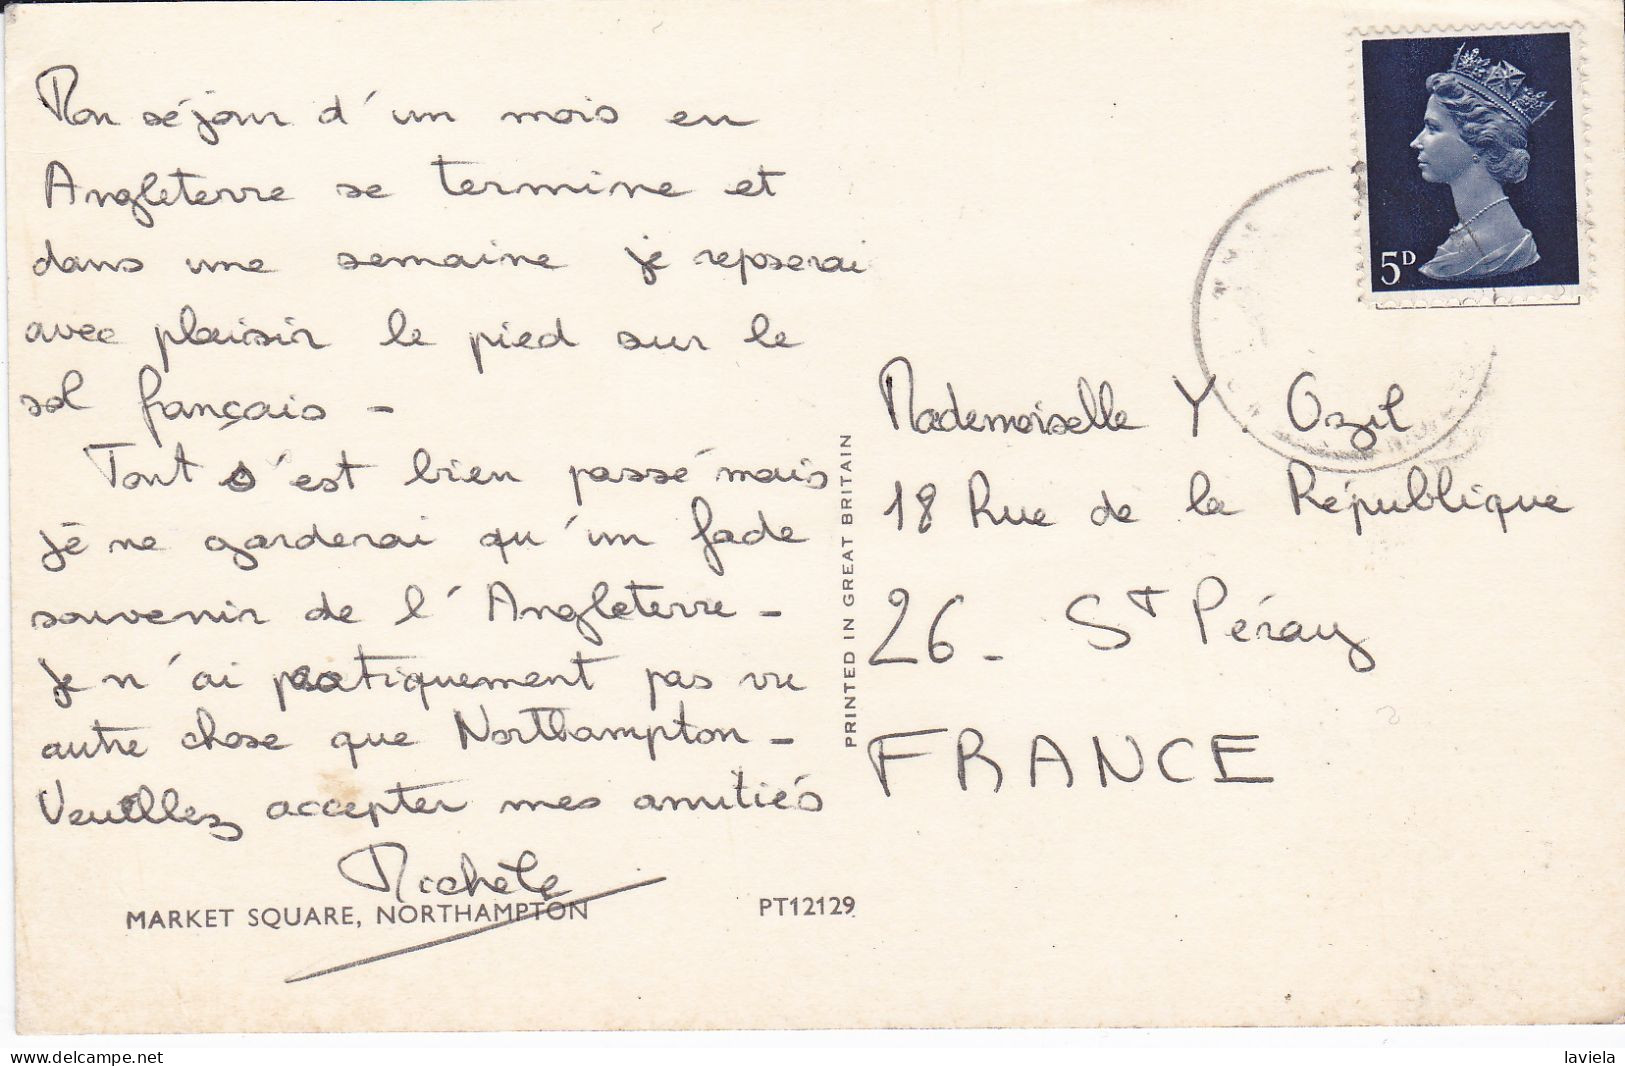 Mon séjour d'un mois en
Angleterre se termine et
dans une semaine je reposerai
avec plaisir le pied sur le
sol français -
Tout s'est bien passé mais
je ne garderai qu'un fade
souvenir de l'Angleterre -
Je n'ai pratiquement pas vu
autre chose que Northampton -
Veuillez accepter mes amitiés
Michèle
MARKET SQUARE, NORTHAMPTON
PT12129
PRINTED IN GREAT BRITAIN
5D
Mademoiselle Y. Ozil
18 Rue de la République
26 - St Péray
FRANCE
laviela